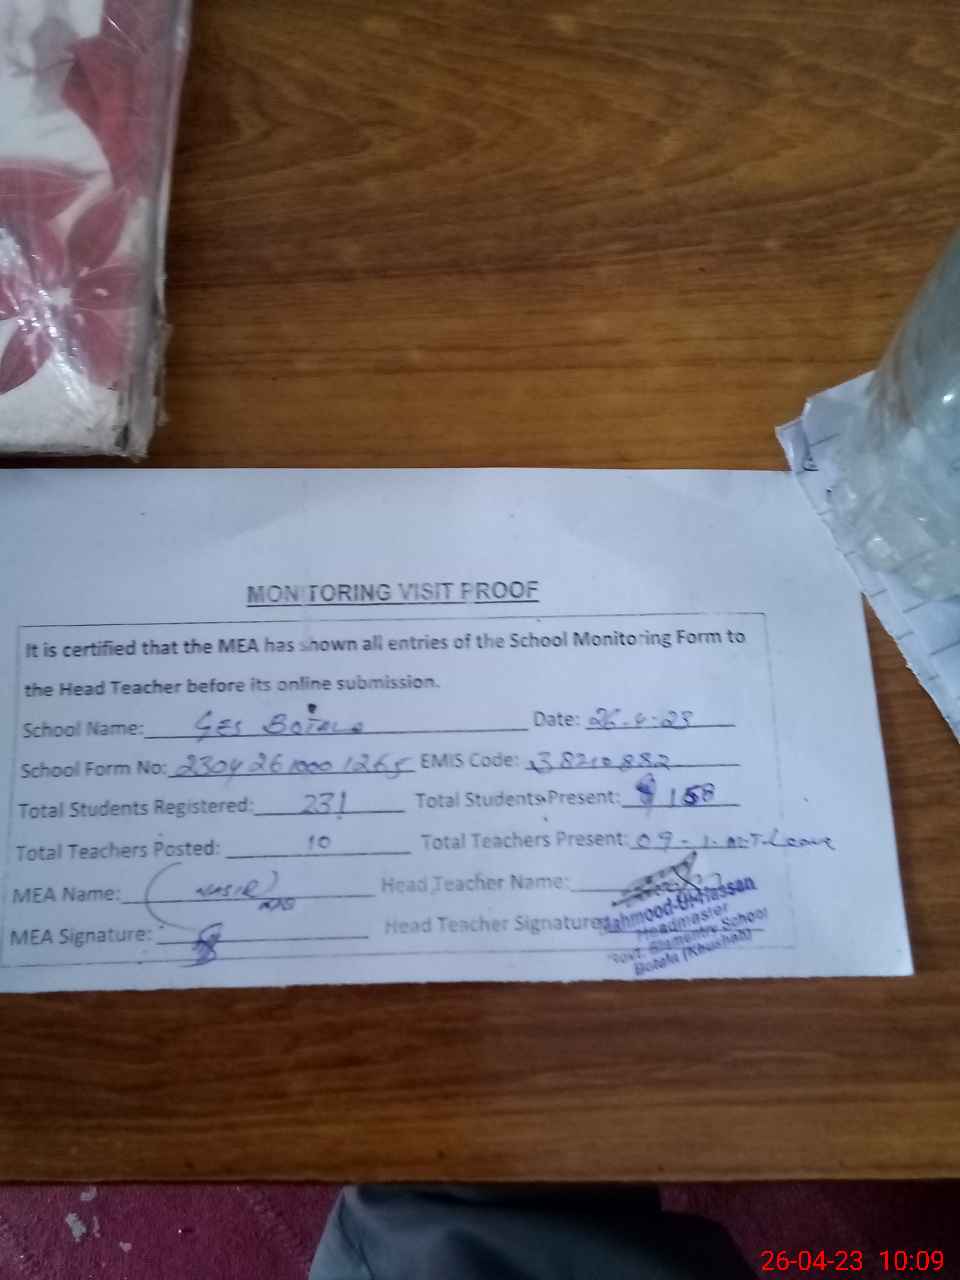 MONITORING VISIT PROOF
It is certified that the MEA has shown all entries of the School Monitoring Form to
the Head Teacher before its online submission.
School Name: GES BOTALA Date: 26-4-23
School Form No: 23042610001265 EMIS Code: 38210882
Total Students Registered: 231 Total Students Present: 158
Total Teachers Posted: 10 Total Teachers Present: 09 - 1
MEA Name: Head Teacher Name:
MEA Signature: Head Teacher Signature
Mahmood-Ul-Hassan
Headmaster
Govt. Elementry School
Botala (Khushab)
26-04-23 10:09